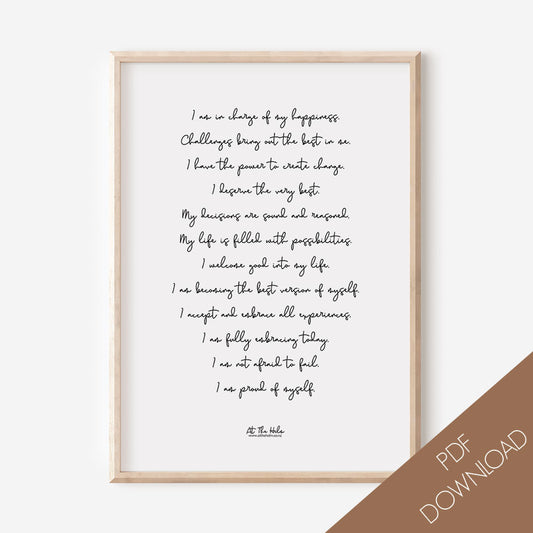 I am in charge of my happiness.
Challenges bring out the best in me.
I have the power to create change.
I deserve the very best.
My decisions are sound and reasoned.
My life is filled with possibilities.
I welcome good into my life.
I am becoming the best version of myself.
I accept and embrace all experiences.
I am fully embracing today.
I am not afraid to fail.
I am proud of myself.
At The Helm
www.atthehelm.co.nz
PDF
DOWNLOAD